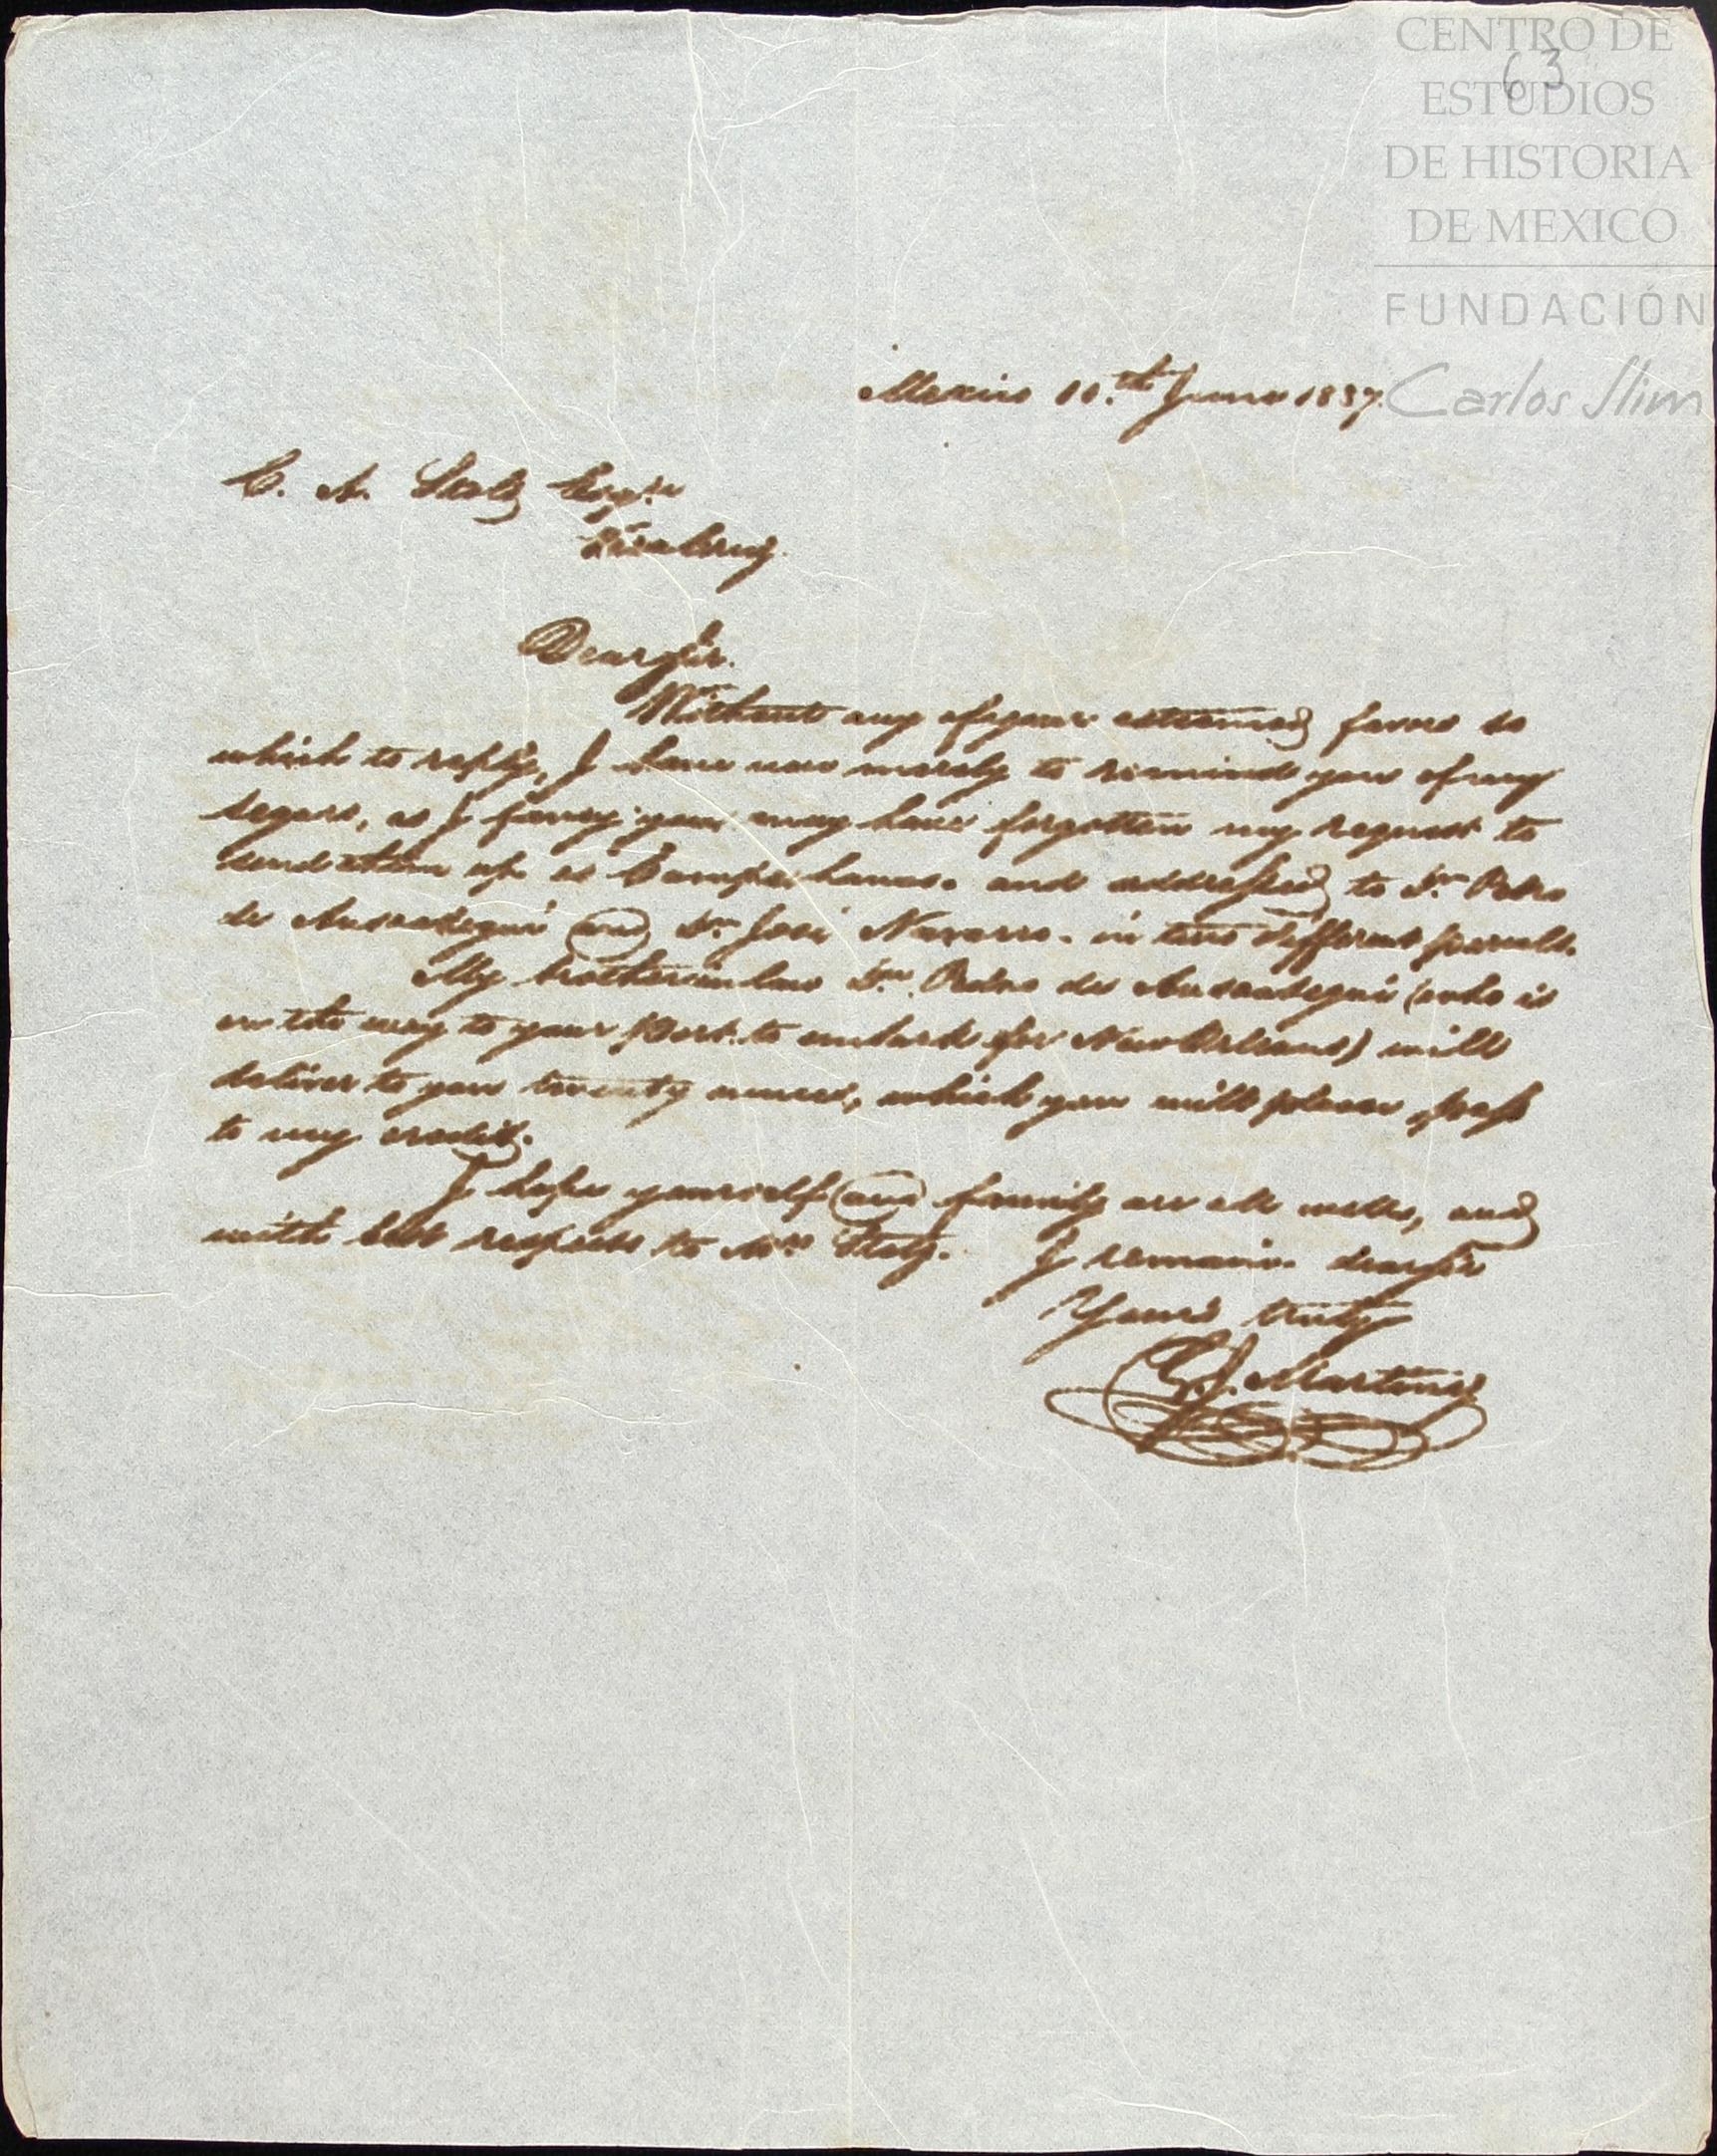 CENTRO DE
63
ESTUDIOS
DE HISTORIA
DE MEXICO
FUNDACIÓN
Carlos Slim
Mexico 10.th June 1837.
C. A. Stolz Esqre.
Vera Cruz.
Dear Sir.
Without any of your esteemed favors to
which to reply, I have now merely to remind you of my
segars, as I fancy you may have forgotten my request to
send them up as Campechanos. and addressed to Dn. Pedro
de Ansoategui and Dn. José Navarro. in two different parcels.
My brother in law Dn. Pedro de Ansoategui (who is
on the way to your Port. to embark for New Orleans) will
deliver to you twenty ounces, which you will please pass
to my credit.
I hope yourself and family are all well, and
with best respects to Mrs. Stolz. I remain. dear sir
Yours truly
J. Martinez